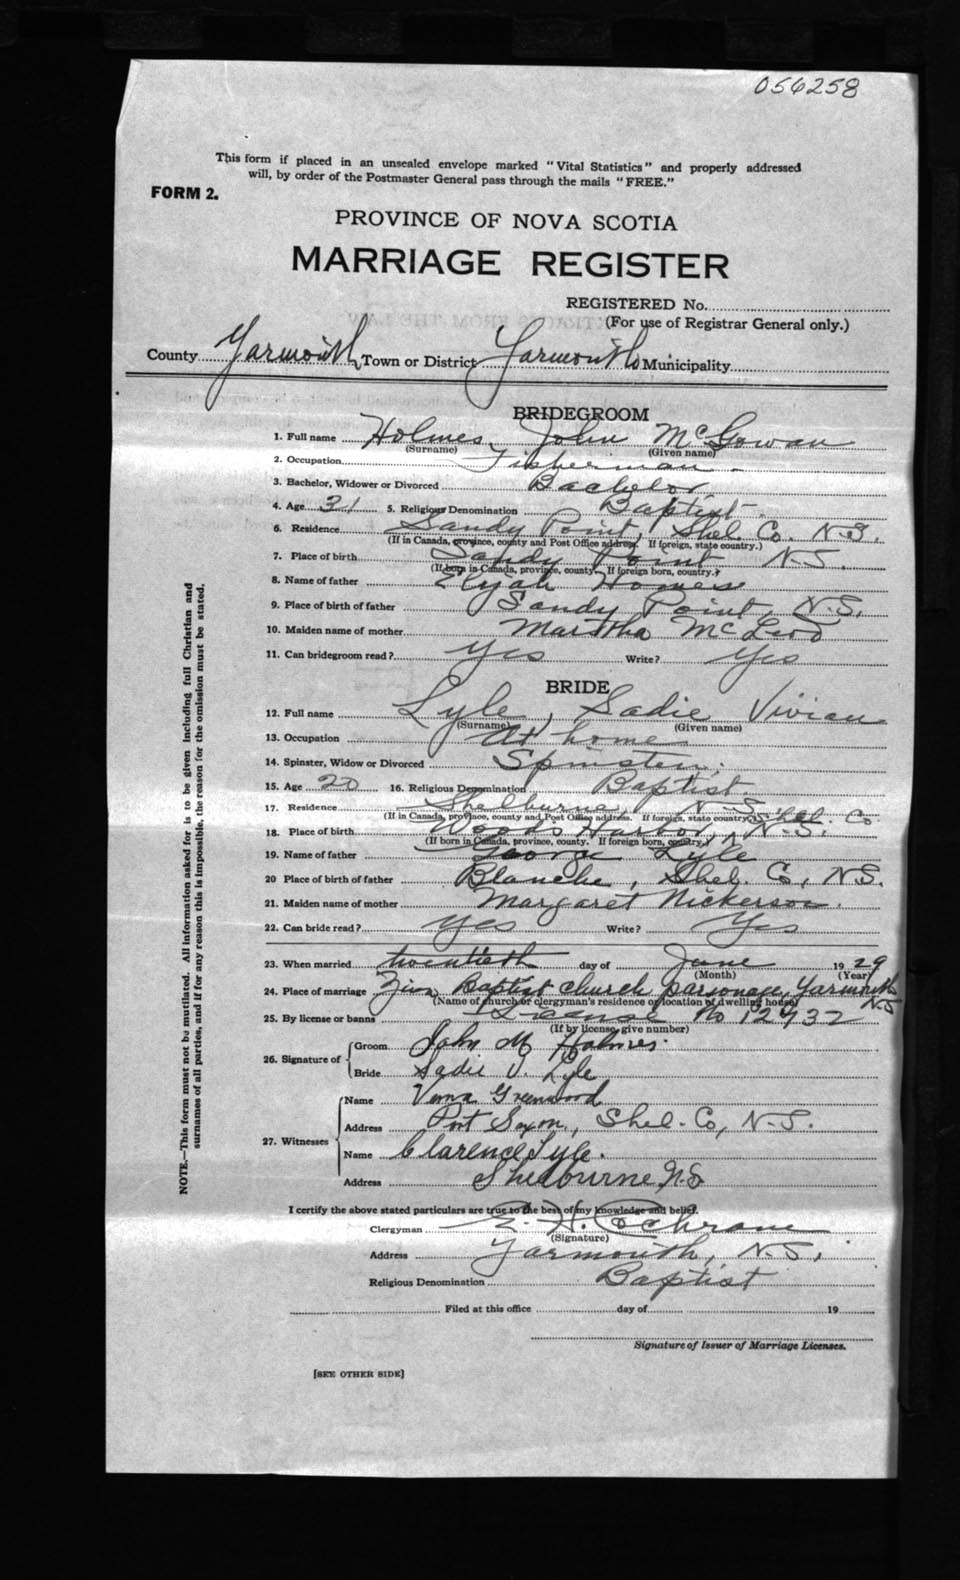 056258
This form if placed in an unsealed envelope marked "Vital Statistics" and properly addressed
will, by order of the Postmaster General pass through the mails "FREE."
FORM 2.
PROVINCE OF NOVA SCOTIA
MARRIAGE REGISTER
REGISTERED No.
(For use of Registrar General only.)
County Yarmouth Town or District Yarmouth Municipality
BRIDEGROOM
1. Full name Holmes, John McGowan
(Surname) (Given name)
2. Occupation Fisherman
3. Bachelor, Widower or Divorced Bachelor
4. Age 31 5. Religious Denomination Baptist
6. Residence Sandy Point, Shel. Co. N.S.
(If in Canada, province, county and Post Office address. If foreign, state country.)
7. Place of birth Sandy Point N.S.
(If born in Canada, province, county. If foreign born, country.)
8. Name of father Elijah Homes
9. Place of birth of father Sandy Point, N.S.
10. Maiden name of mother Martha McLeod
11. Can bridegroom read? Yes Write? Yes
BRIDE
12. Full name Lyle, Sadie Vivian
(Surname) (Given name)
13. Occupation At home
14. Spinster, Widow or Divorced Spinster
15. Age 20 16. Religious Denomination Baptist.
17. Residence Shelburne, N.S. Shel. Co
(If in Canada, province, county and Post Office address. If foreign, state country.)
18. Place of birth Woods Harbor, N.S.
(If born in Canada, province, county. If foreign born, country.)
19. Name of father George Lyle
20 Place of birth of father Blanche, Shel. Co, N.S.
21. Maiden name of mother Margaret Nickerson.
22. Can bride read? Yes Write? Yes
23. When married twentieth day of June 19 29
(Month) (Year)
24. Place of marriage Zion Baptist church parsonage, Yarmouth N.S
(Name of church or clergyman's residence or location of dwelling house)
25. By license or banns License No 12932
(If by license, give number)
26. Signature of
Groom John M Holmes.
Bride Sadie V. Lyle
27. Witnesses
Name Verna Greenwood
Address Port Saxon, Shel. Co, N.S.
Name Clarence Lyle.
Address Shelburne N.S
I certify the above stated particulars are true to the best of my knowledge and belief.
Clergyman E. H. Cochrane
(Signature)
Address Yarmouth, N.S.
Religious Denomination Baptist
Filed at this office day of 19
Signature of Issuer of Marriage Licenses.
[SEE OTHER SIDE]
NOTE.—This form must not be mutilated. All information asked for is to be given including full Christian and
surnames of all parties, and if for any reason this is impossible, the reason for the omission must be stated.